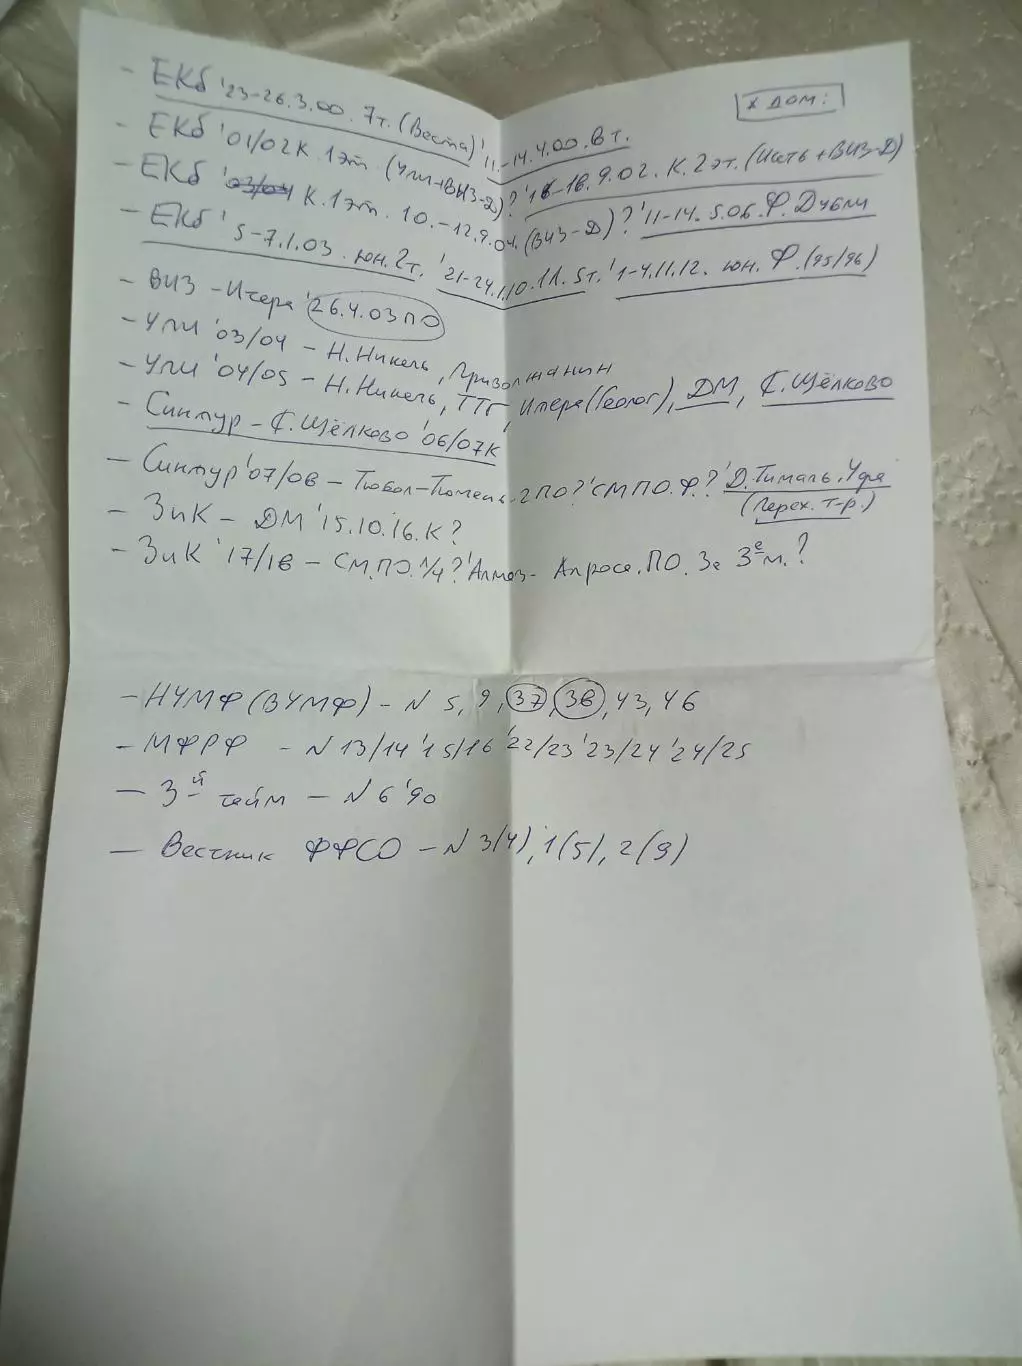 х ДОМ:
- ЕКб '23-26.3.00. 7т. (Веста) '11.-14.4.00. Вт.
- ЕКб '01/02К. 1эт. (УПИ+ВИЗ-Д)? '16-18.9.02. К. 2эт. (Исеть+ВИЗ-Д)
- ЕКб '03/04 К. 1эт. 10.-12.9.04. (ВИЗ-Д)? '11-14.5.06. Ф. Дубли
- ЕКб '5-7.1.03. юн. 2т. '21-24.1.10. 11. 5т. '1-4.11.12. юн. Ф. (95/96)
- ВИЗ - Итера '26.4.03 ПО
- УПИ '03/04 - Н. Никель, Приволжанин
- УПИ '04/05 - Н. Никель, ТТГ, Итера (Геолог), ДМ, С. Щёлково
- Синтур - С. Щёлково '06/07К
- Синтур '07/08 - Тобол-Тюмень-2 ПО? 'СМ ПО. Ф.? 'Д. Тималь. Уфа
(Перех. т-р.)
- ЗиК - ДМ '15.10.16. К?
- ЗиК '17/18 - СМ. ПО. 1/4? 'Алмаз-Алроса. ПО. За 3е м.?
- НУМФ (ВУМФ) - N 5, 9, 37, 38, 43, 46
- МФРФ - N 13/14 '15/16 '22/23 '23/24 '24/25
- 3й тайм - N 6 '90
- Вестник ФФСО - N 3(4), 1(5), 2(9)